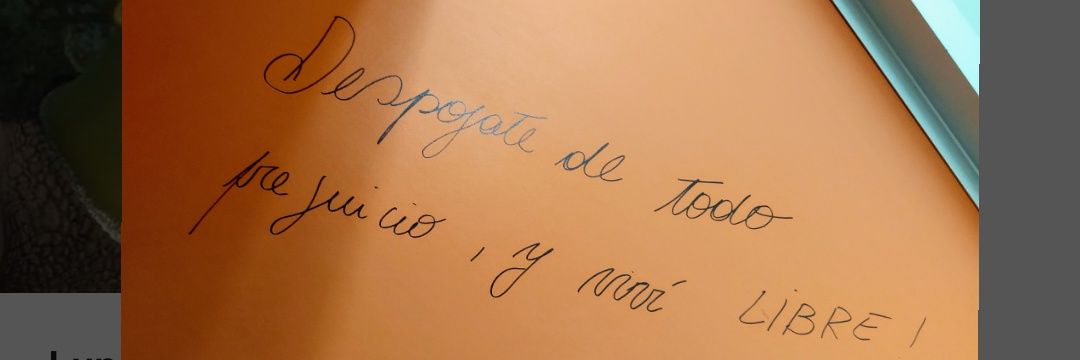 Despojate de todo
prejuicio, y viví LIBRE!